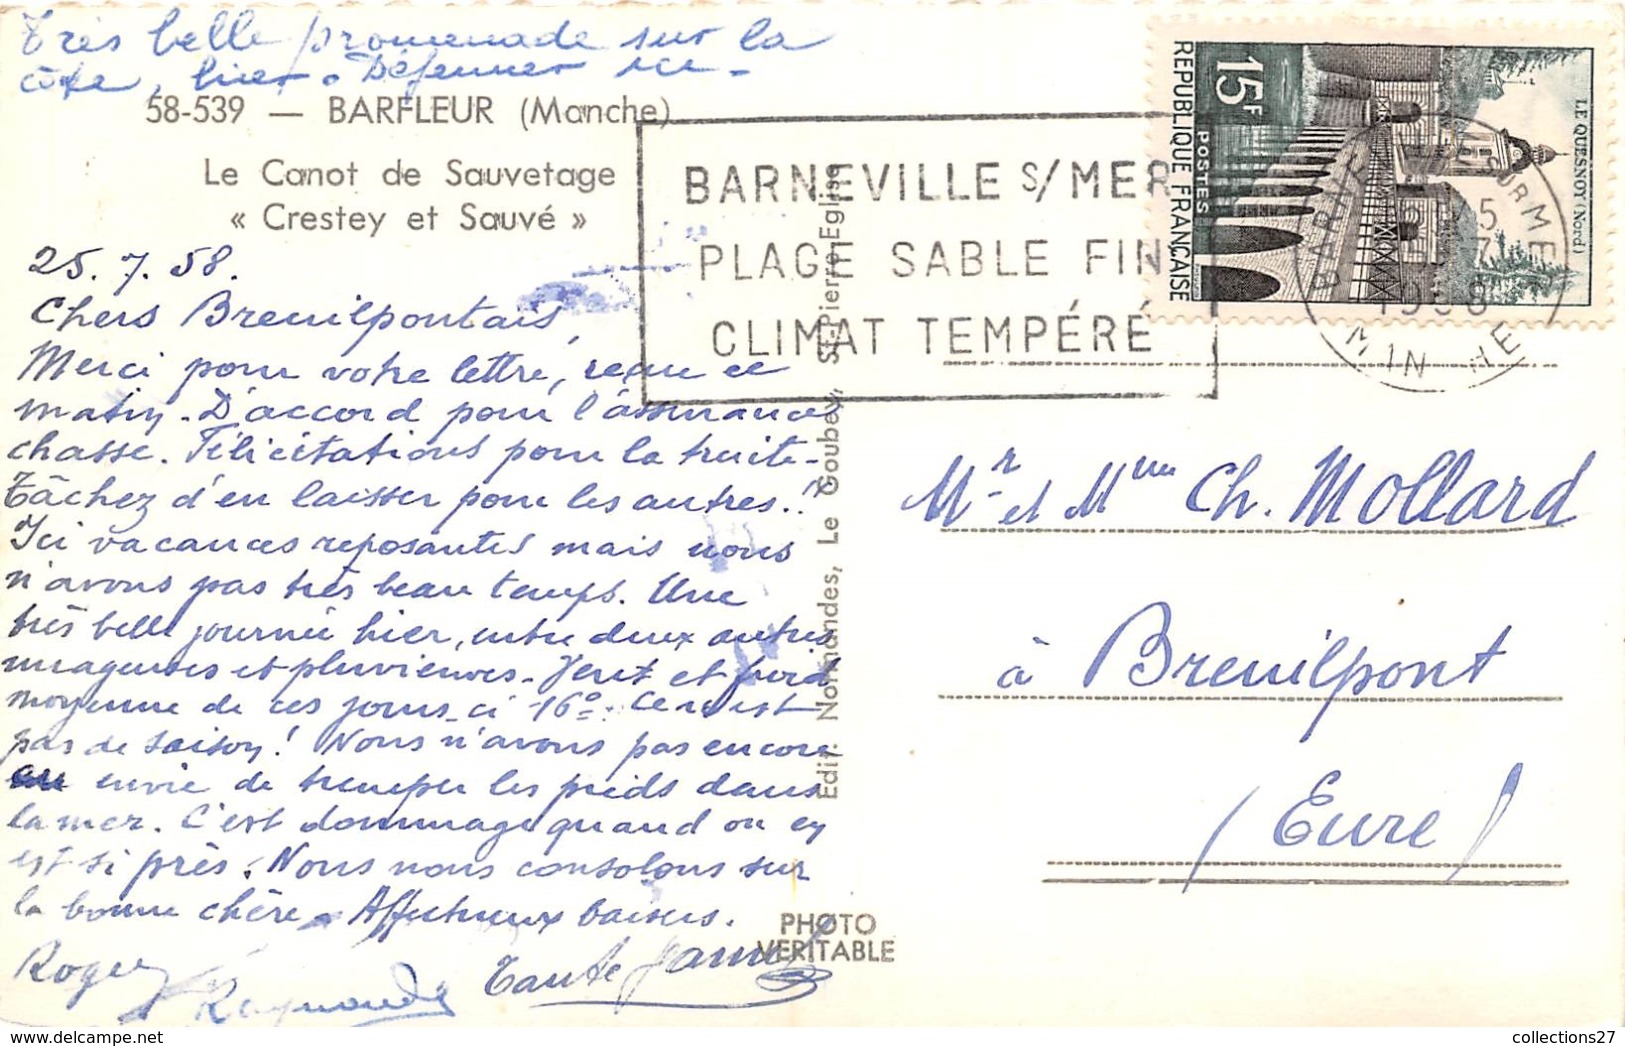 Très belle promenade sur la
côte, hier. Déjeuner ici.
58-539 — BARFLEUR (Manche)
Le Canot de Sauvetage
« Crestey et Sauvé »
25.7.58.
Chers Breuilpontais,
Merci pour votre lettre, reçue ce
matin. D'accord pour l'assurance
chasse. Félicitations pour la truite.
Tâchez d'en laisser pour les autres!!
Ici vacances reposantes mais nous
n'avons pas très beau temps. Une
très belle journée hier, entre deux autres
nuageuses et pluvieuses. Vent et froid
moyenne de ces jours-ci 16°. Ce n'est
pas de saison! Nous n'avons pas encore
envie de tremper les pieds dans
la mer. C'est dommage quand on en
est si près. Nous nous consolons sur
la bonne chère. Affectueux baisers.
Roger
Raymonde
Tante Jeanne
BARNEVILLE S/MER
PLAGE SABLE FIN
CLIMAT TEMPÉRÉ
Edit. Normandes, Le Goubey, St-Pierre-Eglise
PHOTO
VERITABLE
15F
POSTES
REPUBLIQUE FRANÇAISE
LE QUESNOY (Nord)
1958
Mr et Mme Ch. Mollard
à Breuilpont
(Eure)
collections27